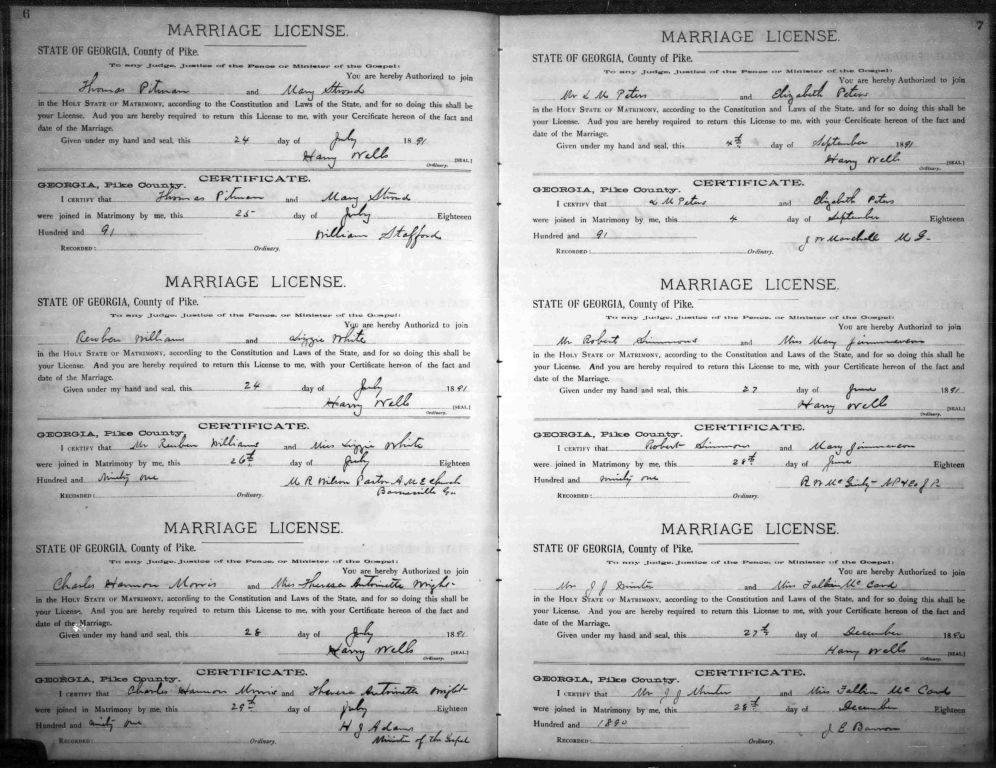 6
MARRIAGE LICENSE.
STATE OF GEORGIA, County of Pike.
To any Judge, Justice of the Peace or Minister of the Gospel:
You are hereby Authorized to join
Thomas Pitman and Mary Stroud
in the HOLY STATE OF MATRIMONY, according to the Constitution and Laws of the State, and for so doing this shall be
your License. And you are hereby required to return this License to me, with your Certificate hereon of the fact and
date of the Marriage.
Given under my hand and seal, this 24 day of July 1891
Harry Wells [SEAL]
Ordinary.
CERTIFICATE.
GEORGIA, Pike County.
I CERTIFY that Thomas Pitman and Mary Stroud
were joined in Matrimony by me, this 25 day of July Eighteen
Hundred and 91 William Stafford
RECORDED: Ordinary.
MARRIAGE LICENSE.
STATE OF GEORGIA, County of Pike.
To any Judge, Justice of the Peace, or Minister of the Gospel:
You are hereby Authorized to join
Reuben Williams and Lizzie White
in the HOLY STATE OF MATRIMONY, according to the Constitution and Laws of the State, and for so doing this shall be
your License. And you are hereby required to return this License to me, with your Certificate hereon of the fact and
date of the Marriage.
Given under my hand and seal, this 24 day of July 1891
Harry Wells [SEAL]
Ordinary.
CERTIFICATE.
GEORGIA, Pike County.
I CERTIFY that Mr Reuben Williams and Miss Lizzie White
were joined in Matrimony by me, this 26th day of July Eighteen
Hundred and Ninety one M R Wilson Pastor A M E Church
Barnesville Ga
RECORDED: Ordinary.
MARRIAGE LICENSE.
STATE OF GEORGIA, County of Pike.
To any Judge, Justice of the Peace, or Minister of the Gospel:
You are hereby Authorized to join
Charles Hannon Morris and Miss Theresa Antoinette Wright
in the HOLY STATE OF MATRIMONY, according to the Constitution and Laws of the State, and for so doing this shall be
your License. And you are hereby required to return this License to me, with your Certificate hereon of the fact and
date of the Marriage.
Given under my hand and seal, this 28 day of July 1891
Harry Wells [SEAL]
Ordinary.
CERTIFICATE.
GEORGIA, Pike County.
I CERTIFY that Charles Hannon Morris and Theresa Antoinette Wright
were joined in Matrimony by me, this 29th day of July Eighteen
Hundred and ninety one H J Adams
Minister of the Gospel
RECORDED: Ordinary.
7
MARRIAGE LICENSE.
STATE OF GEORGIA, County of Pike.
To any Judge, Justice of the Peace or Minister of the Gospel:
You are hereby Authorized to join
Mr L M Peters and Elizabeth Peters
in the HOLY STATE OF MATRIMONY, according to the Constitution and Laws of the State, and for so doing this shall be
your License. And you are hereby required to return this License to me, with your Certificate hereon of the fact and
date of the Marriage.
Given under my hand and seal, this 4th day of September 1891
Harry Wells [SEAL]
Ordinary.
CERTIFICATE.
GEORGIA, Pike County.
I CERTIFY that L M Peters and Elizabeth Peters
were joined in Matrimony by me, this 4 day of September Eighteen
Hundred and 91 J W Marshall M G
RECORDED: Ordinary.
MARRIAGE LICENSE.
STATE OF GEORGIA, County of Pike.
To any Judge, Justice of the Peace, or Minister of the Gospel:
You are hereby Authorized to join
Mr Robert Simmons and Miss Mary Jimmerson
in the HOLY STATE OF MATRIMONY, according to the Constitution and Laws of the State, and for so doing this shall be
your License. And you are hereby required to return this License to me, with your Certificate hereon of the fact and
date of the Marriage.
Given under my hand and seal, this 27 day of June 1891
Harry Wells [SEAL]
Ordinary.
CERTIFICATE.
GEORGIA, Pike County.
I CERTIFY that Robert Simmons and Mary Jimmerson
were joined in Matrimony by me, this 28th day of June Eighteen
Hundred and ninety one R W McGinty NP & Ex J P
RECORDED: Ordinary.
MARRIAGE LICENSE.
STATE OF GEORGIA, County of Pike.
To any Judge, Justice of the Peace, or Minister of the Gospel:
You are hereby Authorized to join
Mr J J Minter and Miss Fallin McCord
in the HOLY STATE OF MATRIMONY, according to the Constitution and Laws of the State, and for so doing this shall be
your License. And you are hereby required to return this License to me, with your Certificate hereon of the fact and
date of the Marriage.
Given under my hand and seal, this 27th day of December 1890
Harry Wells [SEAL]
Ordinary.
CERTIFICATE.
GEORGIA, Pike County.
I CERTIFY that Mr J J Minter and Miss Fallin McCord
were joined in Matrimony by me, this 28th day of December Eighteen
Hundred and 1890 J E Barron
RECORDED: Ordinary.